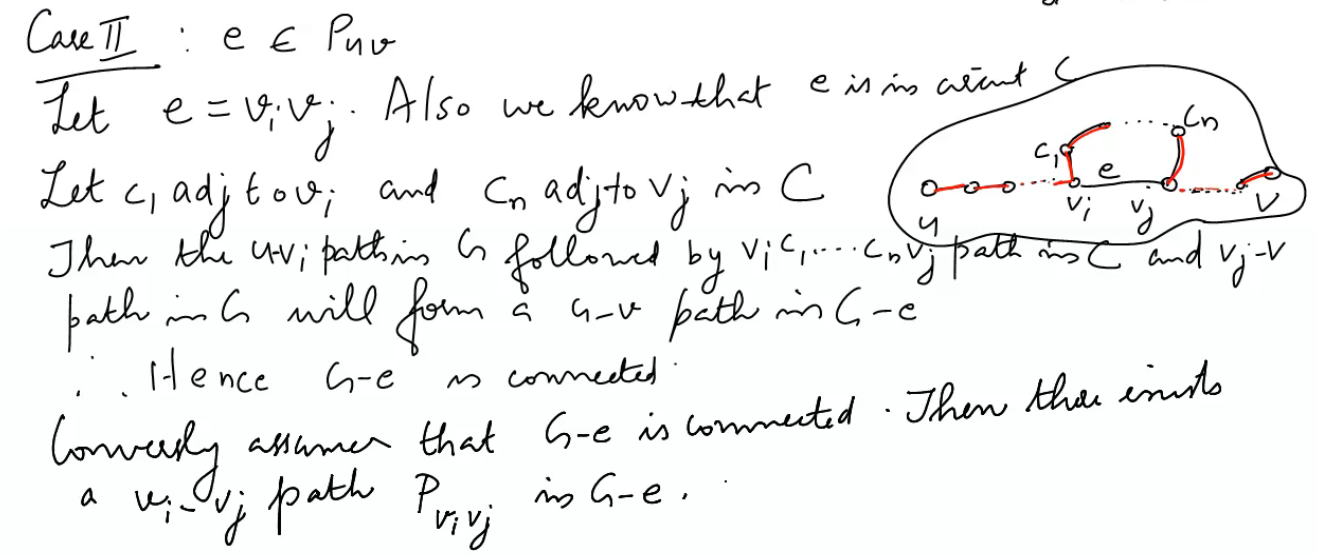 Case II : e ∈ Puv
Let e = vivj. Also we know that e is in circuit C
Let c1 adj to vi and cn adj to vj in C
Then the u-vi path in G followed by vi c1 .... cn vj path in C and vj-v
path in G will form a u-v path in G-e
∴ Hence G-e is connected.
Conversly assumer that G-e is connected. Then there exists
a vi-vj path Pvivj in G-e.
c1
cn
e
u
vi
vj
v